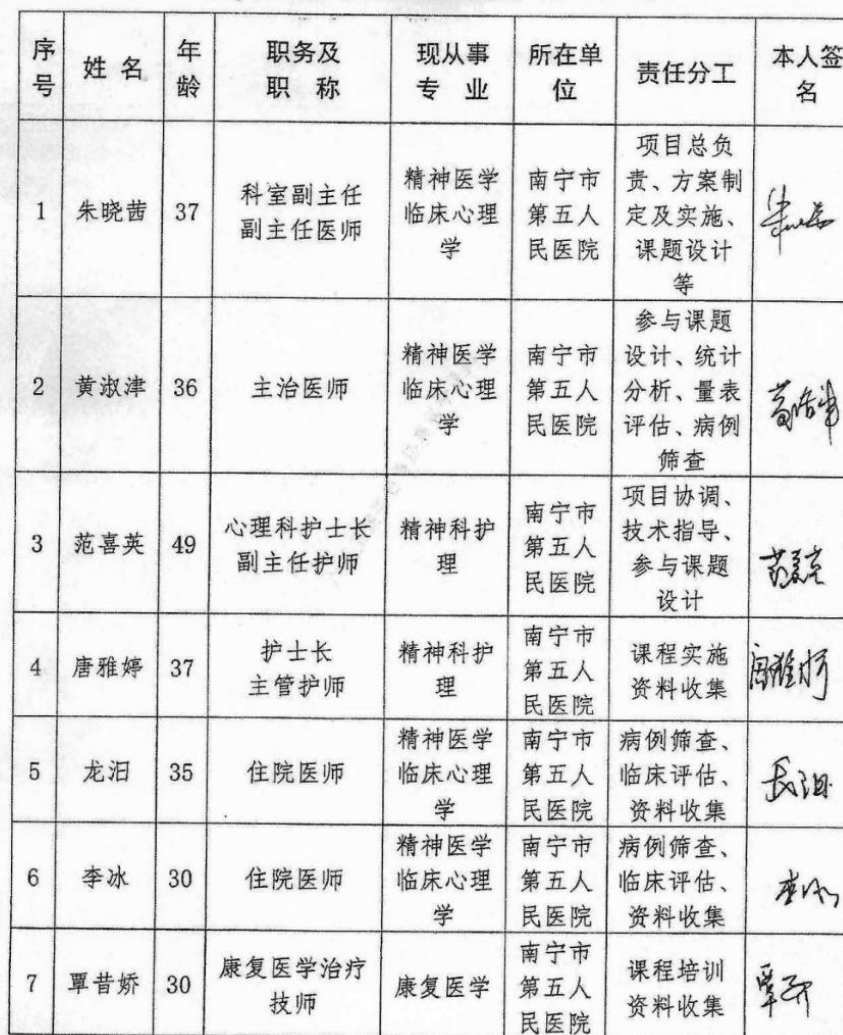 序号 姓 名 年龄 职务及职 称 现从事专 业 所在单位 责任分工 本人签名
1 朱晓茜 37 科室副主任副主任医师 精神医学临床心理学 南宁市第五人民医院 项目总负责、方案制定及实施、课题设计等
2 黄淑津 36 主治医师 精神医学临床心理学 南宁市第五人民医院 参与课题设计、统计分析、量表评估、病例筛查
3 范喜英 49 心理科护士长副主任护师 精神科护理 南宁市第五人民医院 项目协调、技术指导、参与课题设计
4 唐雅婷 37 护士长主管护师 精神科护理 南宁市第五人民医院 课程实施资料收集
5 龙汨 35 住院医师 精神医学临床心理学 南宁市第五人民医院 病例筛查、临床评估、资料收集
6 李冰 30 住院医师 精神医学临床心理学 南宁市第五人民医院 病例筛查、临床评估、资料收集 李冰
7 覃昔娇 30 康复医学治疗技师 康复医学 南宁市第五人民医院 课程培训资料收集